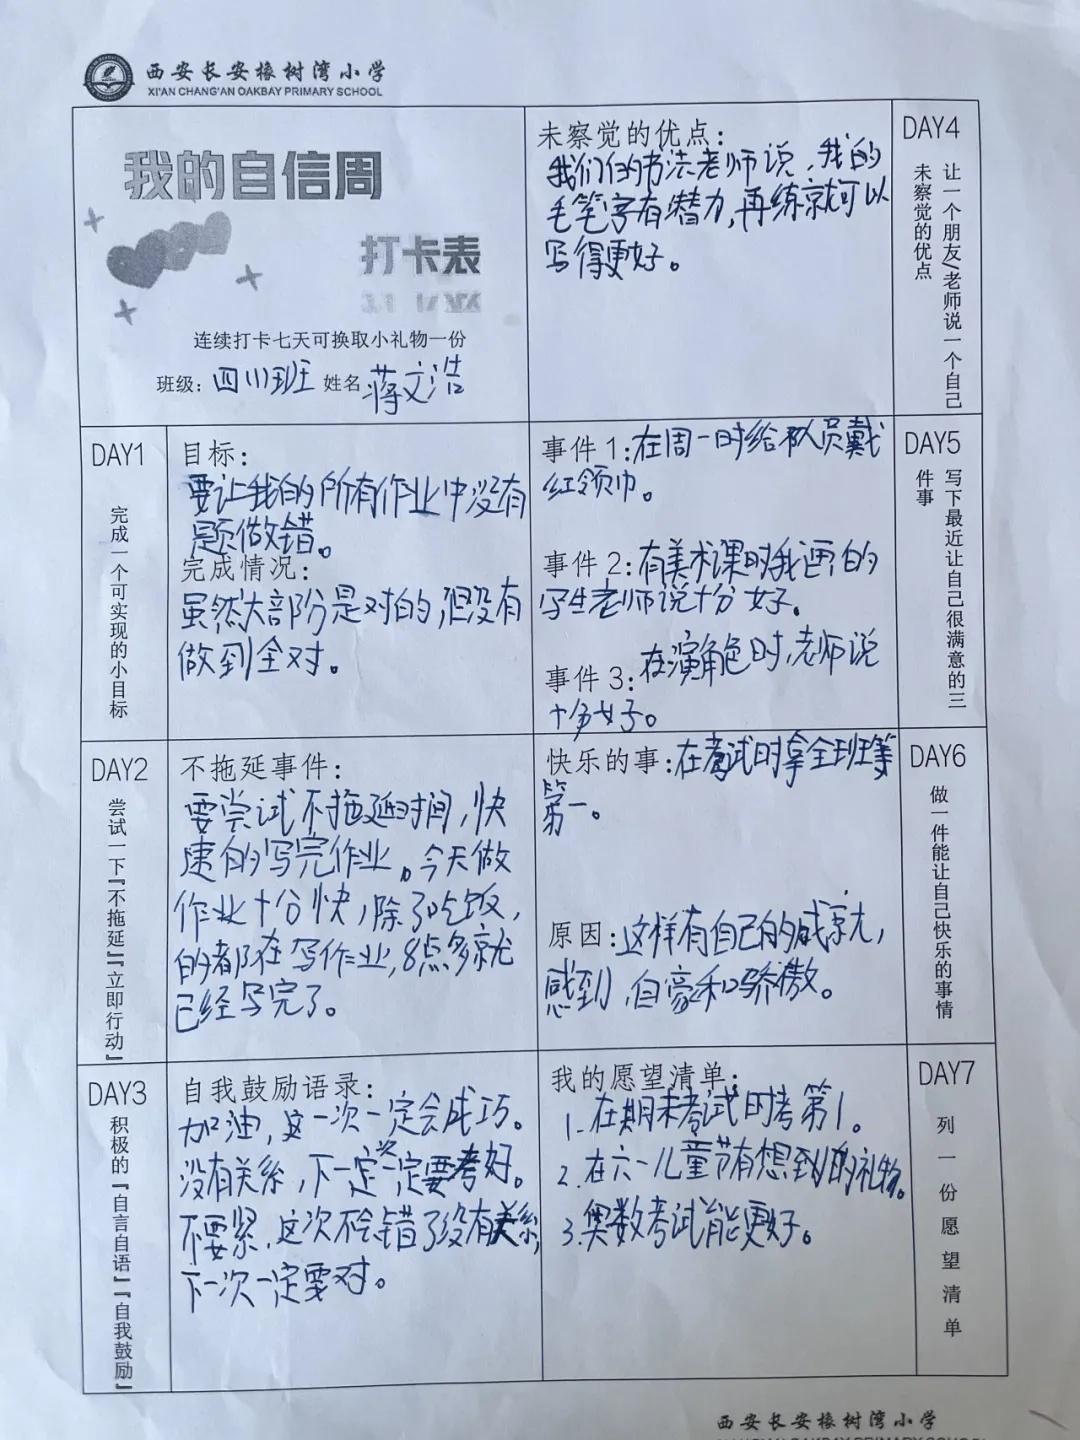 西安长安橡树湾小学
XI'AN CHANG'AN OAKBAY PRIMARY SCHOOL
我的自信周
打卡表
连续打卡七天可换取小礼物一份
班级：四川班 姓名 蒋文浩
DAY1
完成一个可实现的小目标
目标：
要让我的所有作业中没有
题做错。
完成情况：
虽然大部份是对的，但没有
做到全对。
DAY2
尝试一下『不拖延』『立即行动』
不拖延事件：
要尝试不拖延时间，快
速的写完作业。今天做
作业十分快，除了吃饭，
的都在写作业，8点多就
已经写完了。
DAY3
积极的『自言自语』『自我鼓励』
自我鼓励语录：
加油，这一次一定会成巧。
没有关系，下一定一定要考好。
不要紧，这次不会错了没有关系，
下一次一定要对。
DAY4
让一个朋友/老师说一个自己
未察觉的优点
未察觉的优点：
我们的书法老师说，我的
毛笔字有潜力，再练就可以
写得更好。
DAY5
写下最近让自己很满意的三
件事
事件1：在周一时给队员戴
红领巾。
事件2：有美术课时我画的
写生老师说十分好。
事件3：在演角色时，老师说
十分好。
DAY6
做一件能让自己快乐的事情
快乐的事：在考试时拿全班第
第一。
原因：这样有自己的成就，
感到，自豪和骄傲。
DAY7
列一份愿望清单
我的愿望清单：
1.在期末考试时考第1。
2.在六一儿童节有想到的礼物。
3.奥数考试能更好。
西安长安橡树湾小学
XI'AN CHANG'AN OAKBAY PRIMARY SCHOOL